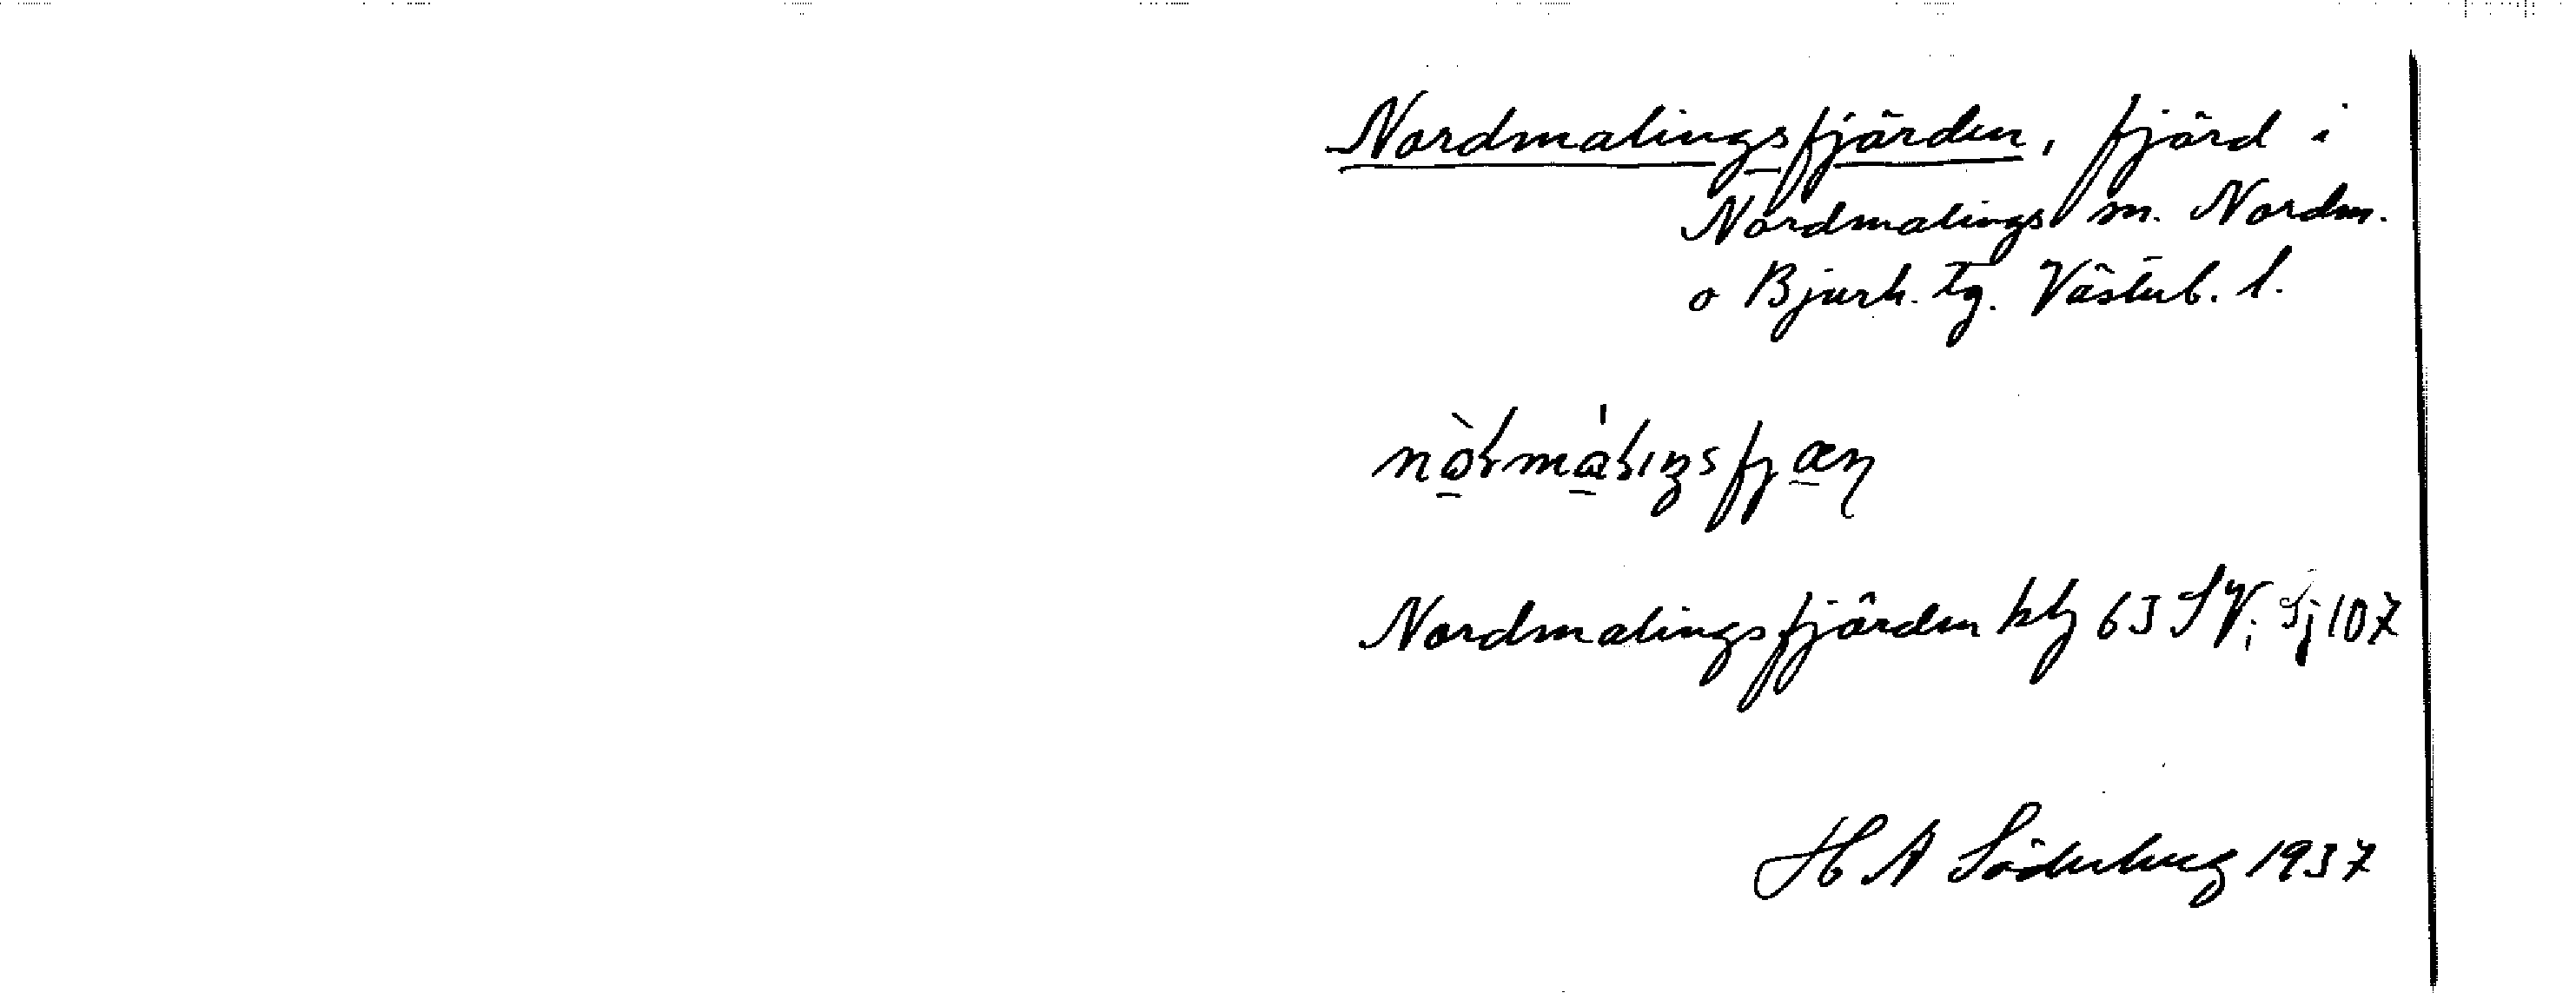 Nordmalingsfjärden, fjärd i
Nordmalings sn. Nordm.
o Bjurh. tg. Västerb. l.
Nordmalingsfjärden kbl 63 SV; Sj 107
H A Söderberg 1937